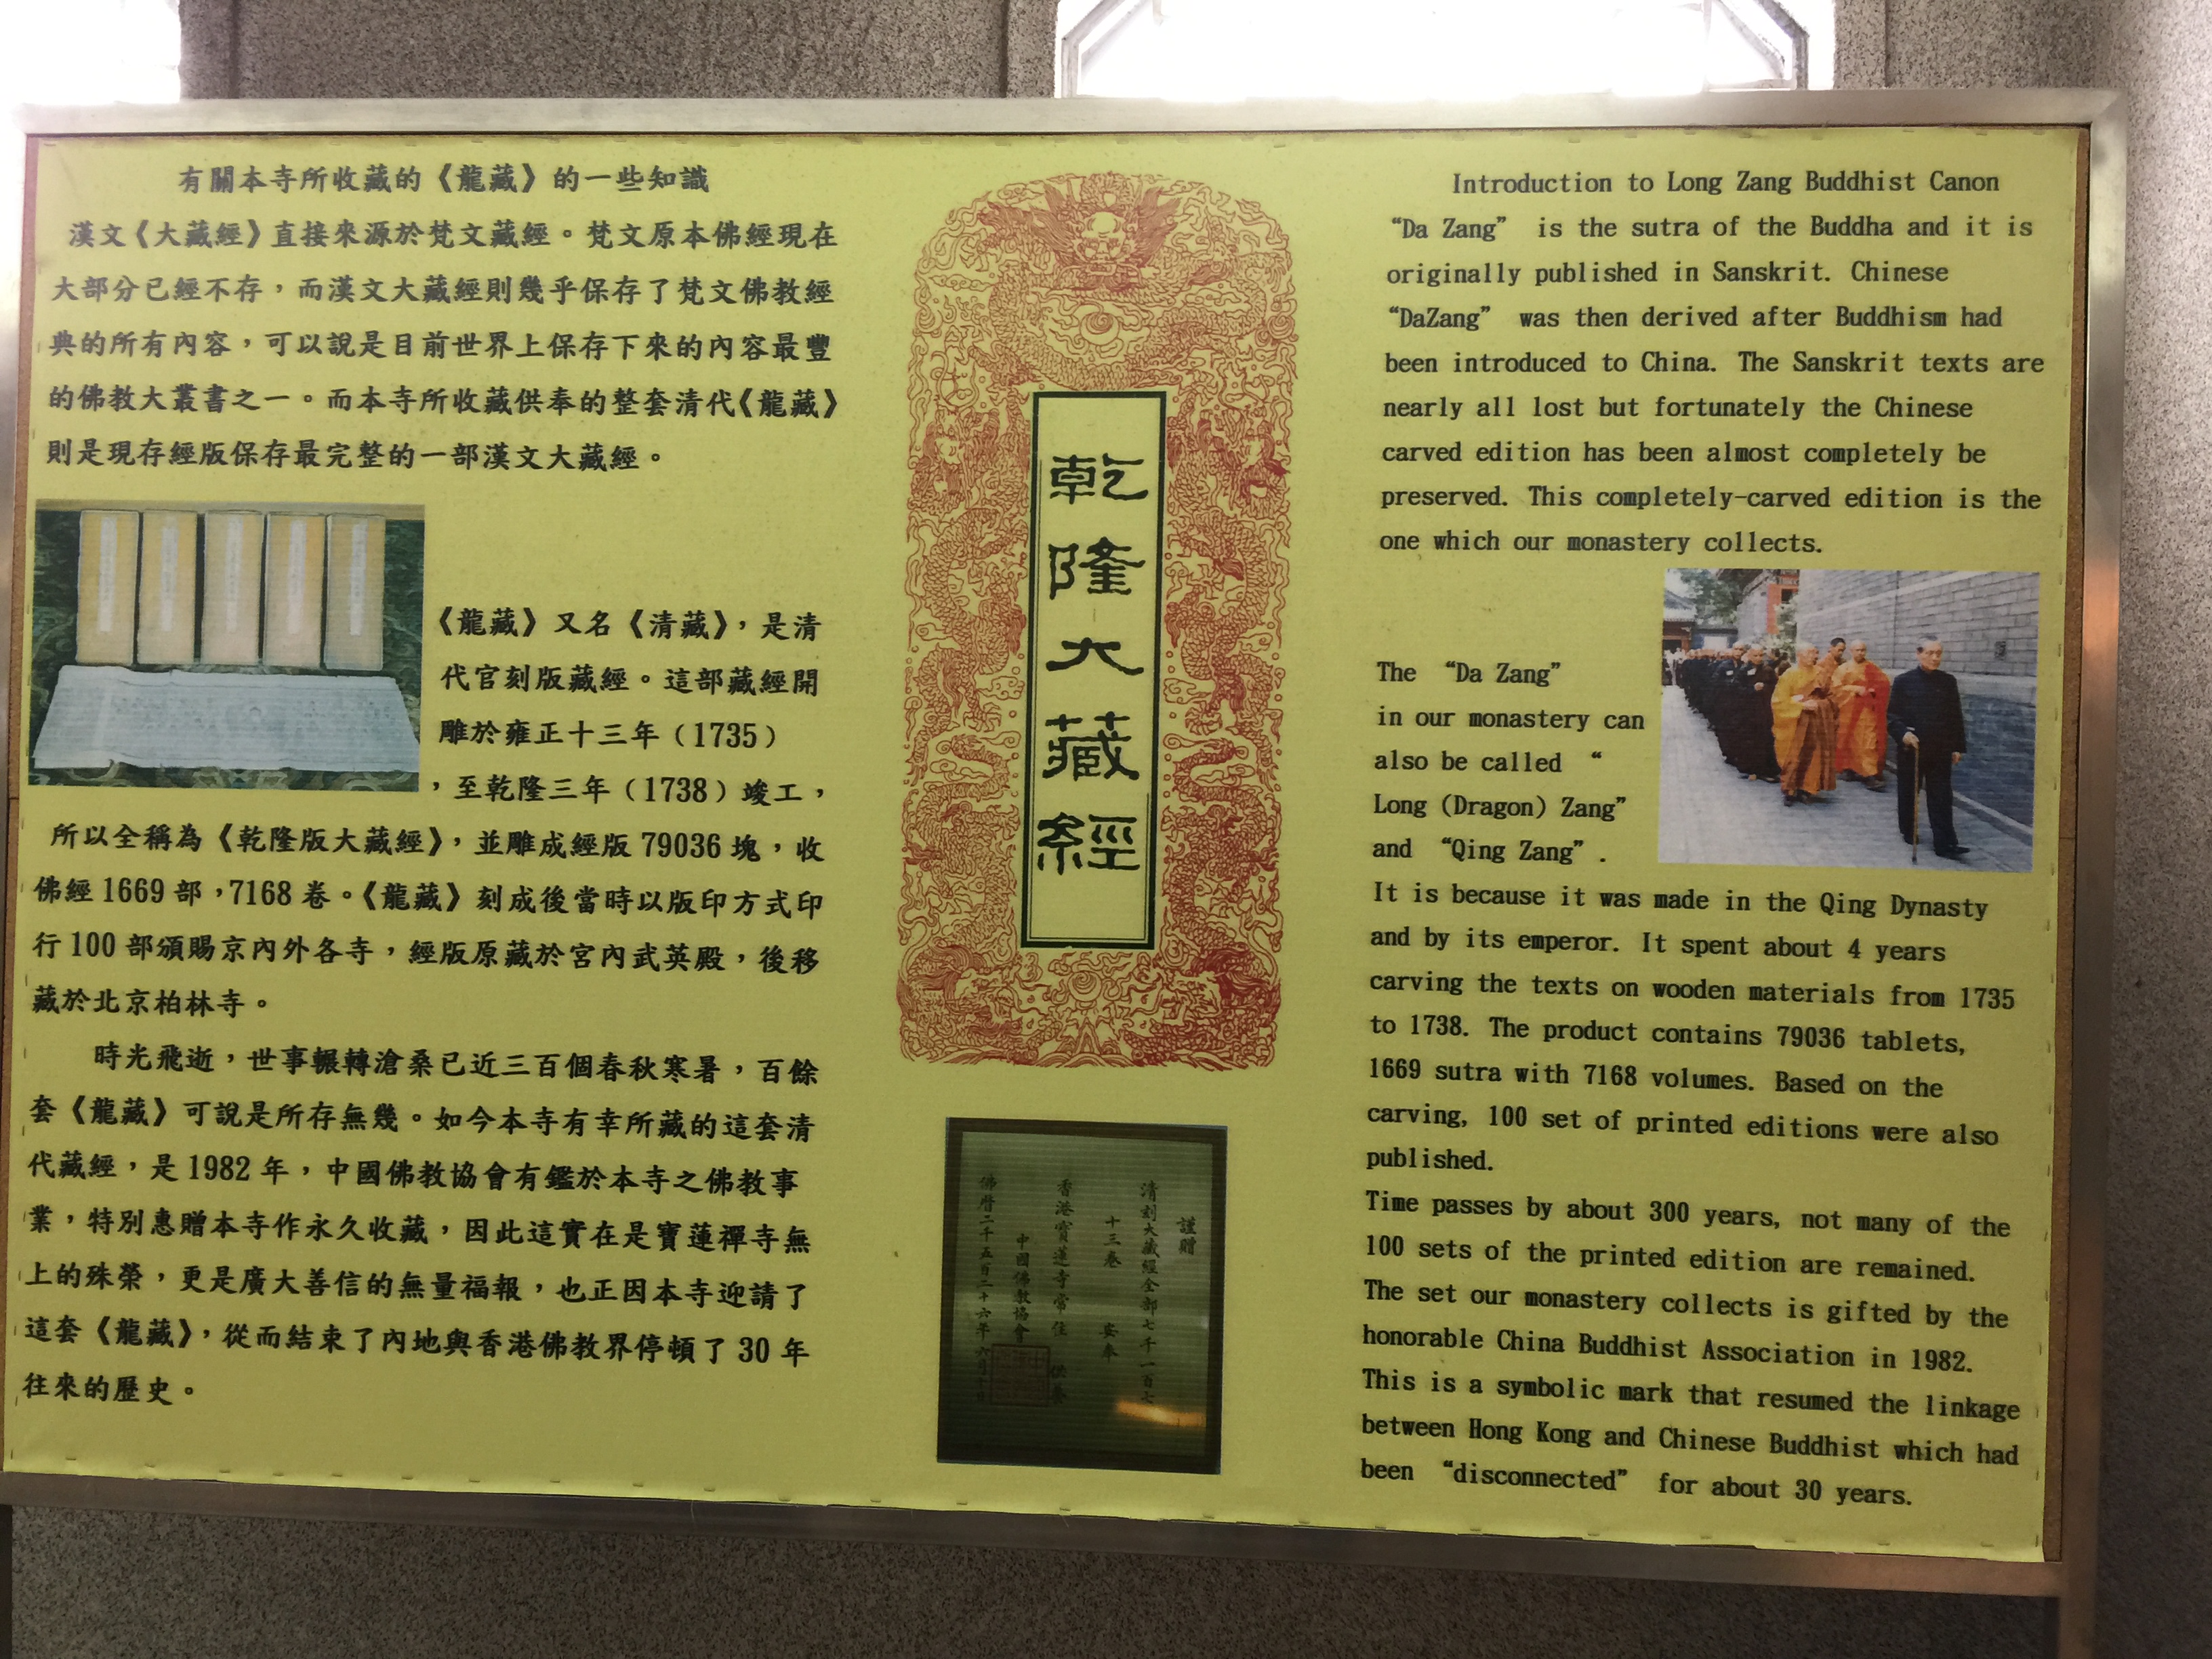 有關本寺所收藏的《龍藏》的一些知識
漢文《大藏經》直接來源於梵文藏經。梵文原本佛經現在
大部分已經不存，而漢文大藏經則幾乎保存了梵文佛教經
典的所有內容，可以說是目前世界上保存下來的內容最豐
的佛教大叢書之一。而本寺所收藏供奉的整套清代《龍藏》
則是現存經版保存最完整的一部漢文大藏經。
《龍藏》又名《清藏》，是清
代官刻版藏經。這部藏經開
雕於雍正十三年（1735）
，至乾隆三年（1738）竣工，
所以全稱為《乾隆版大藏經》，並雕成經版 79036 塊，收
佛經 1669 部，7168 卷。《龍藏》刻成後當時以版印方式印
行 100 部頒賜京內外各寺，經版原藏於宮內武英殿，後移
藏於北京柏林寺。
時光飛逝，世事輾轉滄桑已近三百個春秋寒暑，百餘
套《龍藏》可說是所存無幾。如今本寺有幸所藏的這套清
代藏經，是 1982 年，中國佛教協會有鑑於本寺之佛教事
業，特別惠贈本寺作永久收藏，因此這實在是寶蓮禪寺無
上的殊榮，更是廣大善信的無量福報，也正因本寺迎請了
這套《龍藏》，從而結束了內地與香港佛教界停頓了 30 年
往來的歷史。
乾隆大藏經
謹贈
清刻大藏經全部七千一百七
十三卷 安奉
香港寶蓮寺常住 供養
中國佛教協會
佛曆二千五百二十六年六月
Introduction to Long Zang Buddhist Canon
“Da Zang” is the sutra of the Buddha and it is
originally published in Sanskrit. Chinese
“DaZang” was then derived after Buddhism had
been introduced to China. The Sanskrit texts are
nearly all lost but fortunately the Chinese
carved edition has been almost completely be
preserved. This completely-carved edition is the
one which our monastery collects.
The “Da Zang”
in our monastery can
also be called “
Long (Dragon) Zang”
and “Qing Zang”.
It is because it was made in the Qing Dynasty
and by its emperor. It spent about 4 years
carving the texts on wooden materials from 1735
to 1738. The product contains 79036 tablets,
1669 sutra with 7168 volumes. Based on the
carving, 100 set of printed editions were also
published.
Time passes by about 300 years, not many of the
100 sets of the printed edition are remained.
The set our monastery collects is gifted by the
honorable China Buddhist Association in 1982.
This is a symbolic mark that resumed the linkage
between Hong Kong and Chinese Buddhist which had
been “disconnected” for about 30 years.